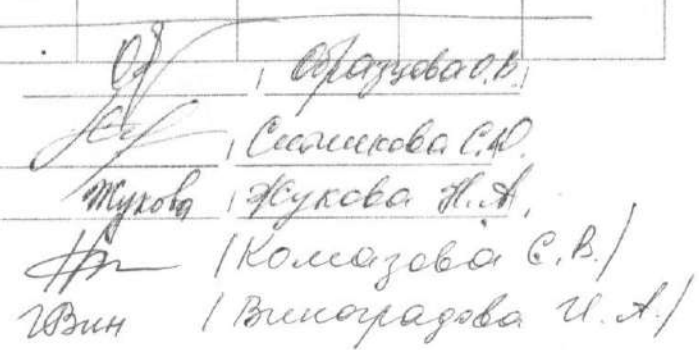 Образцова О.В.
Ситникова С.Ю.
Жукова / Жукова Н.А.
/Комазова С.В./
Вин /Виноградова И.А./